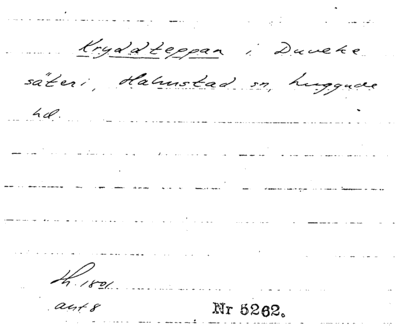 Kryddteppan i Duveke
säteri, Halmstad sn, Luggude
hd.
Lh. 1801
ant 8
Nr 5262.